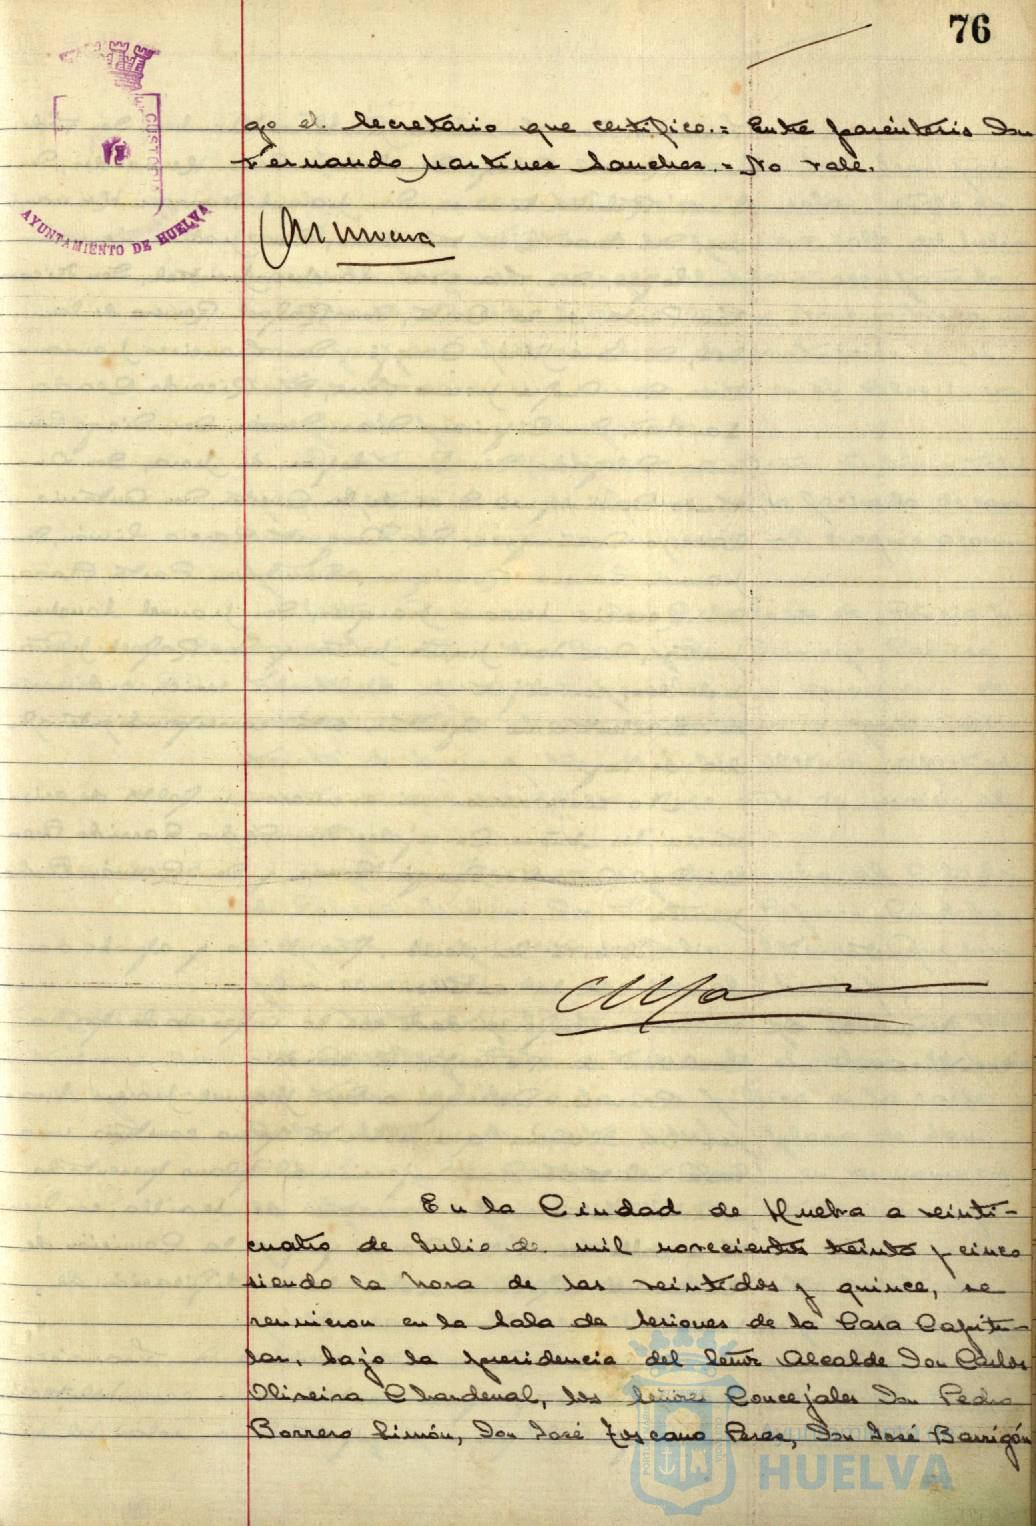 76
CUSTOS
AYUNTAMIENTO DE HUELVA
go el Secretario que certifico.= Entre parentesis Don
Fernando Martinez Sanchez.= No vale.
En la Ciudad de Huelva a veinti-
cuatro de Julio de mil novecientos treinta y cinco
siendo la hora de las veintidos y quince, se
reunieron en la Sala de Sesiones de la Casa Capitu-
lar, bajo la presidencia del Señor Alcalde Don Carlos
Oliveira Chardenal, los Señores Concejales Don Pedro
Borrero Limón, Don José Toscano Perez, Don José Barrigón
HUELVA